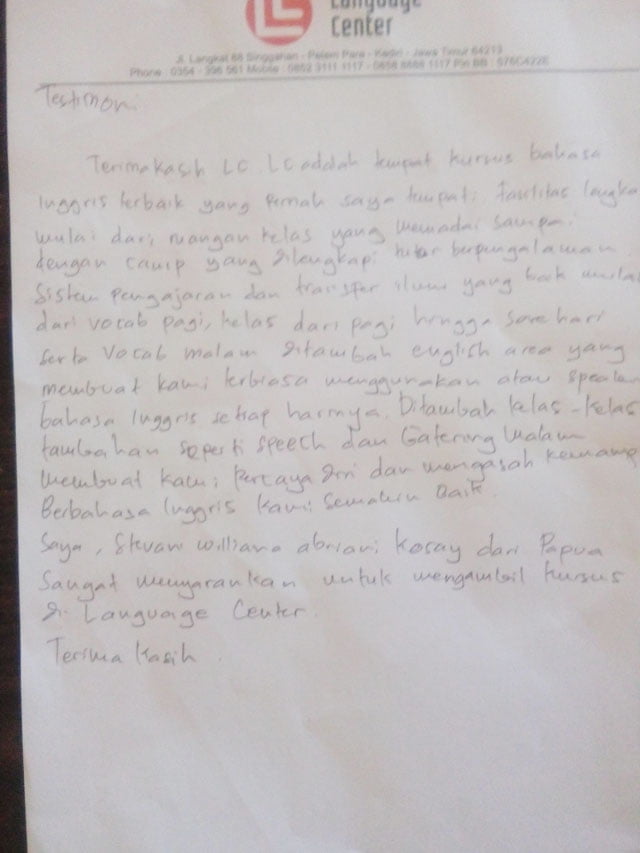 LC
Language
Center
Jl. Langkat 88 Singgahan - Pelem Pare - Kediri - Jawa Timur 64213
Phone : 0354 - 396 561 Mobile : 0852 3111 1117 - 0858 8888 1117 Pin BB : 576C422E
Testimoni
Terimakasih LC. LC adalah tempat kursus bahasa
Inggris terbaik yang pernah saya tempati, fasilitas
mulai dari ruangan kelas yang memadai sampai
dengan camp yang dilengkapi tutor berpengalaman.
Sistem pengajaran dan transfer ilmu yang baik mulai
dari vocab pagi, kelas dari pagi hingga sore hari
serta vocab malam ditambah english area yang
membuat kami terbiasa menggunakan atau
bahasa Inggris setiap harinya. Ditambah kelas-kelas
tambahan seperti speech dan Gatering malam
membuat kami percaya diri dan mengasah
Berbahasa Inggris kami semakin baik.
Saya, Stevani williana abriani Koray dari Papua
Sangat menyarankan untuk mengambil kursus
di Language Center.
Terima kasih.